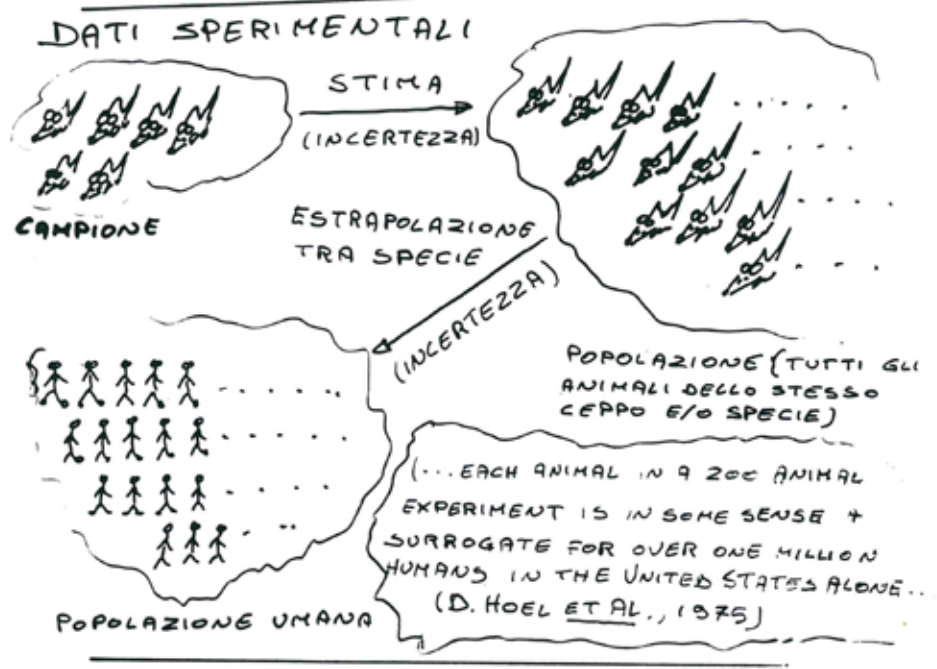 DATI SPERIMENTALI
STIMA
(INCERTEZZA)
CAMPIONE
ESTRAPOLAZIONE
TRA SPECIE
(INCERTEZZA)
POPOLAZIONE (TUTTI GLI
ANIMALI DELLO STESSO
CEPPO E/O SPECIE)
(... EACH ANIMAL IN A ANIMAL
EXPERIMENT IS IN SOME SENSE
SURROGATE FOR OVER ONE MILLION
HUMANS IN THE UNITED STATES ALONE...
(D. HOEL ET AL., 1975)
POPOLAZIONE UMANA